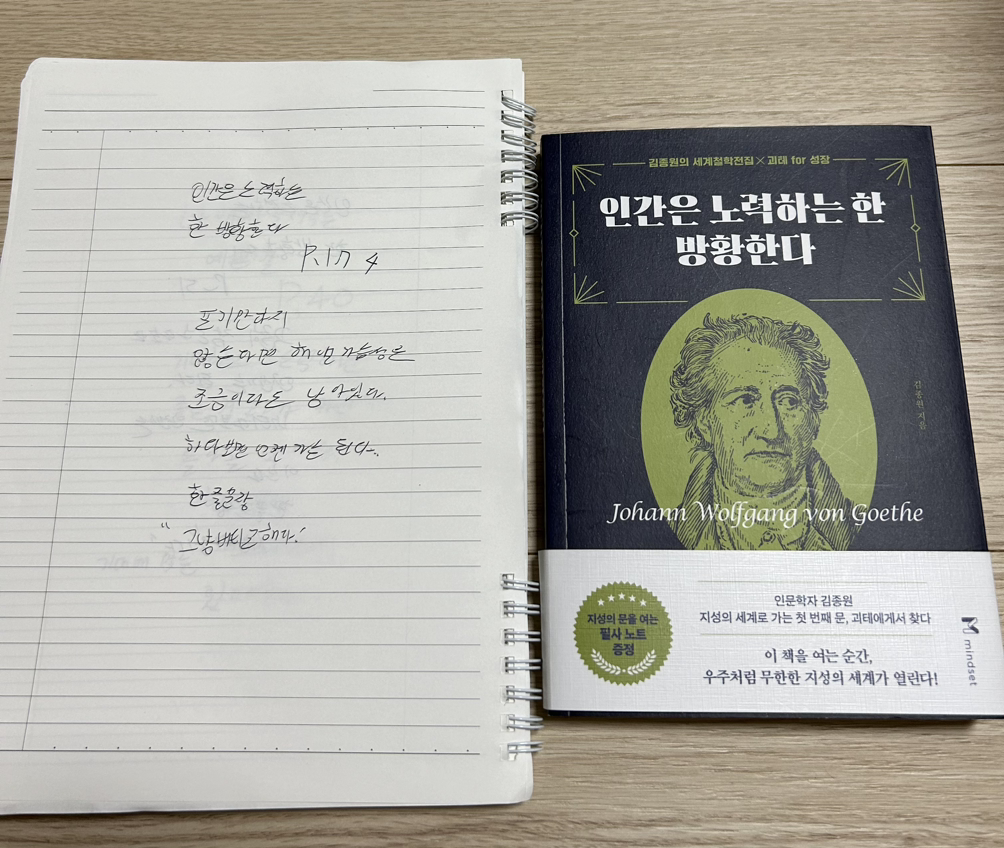 인간은 노력하는
한 방황한다
P.17 4
포기만 하지
않는다면 해낼 가능성은
조금이라도 남아있다.
하다보면 언젠가는 된다.
한 줄 요약
"그냥 버티고 해라!
김종원의 세계철학전집×괴테 for 성장
인간은 노력하는 한
방황한다
김종원 지음
Johann Wolfgang von Goethe
지성의 문을 여는
필사 노트
증정
인문학자 김종원
지성의 세계로 가는 첫 번째 문, 괴테에게서 찾다
이 책을 여는 순간,
우주처럼 무한한 지성의 세계가 열린다!
mindset